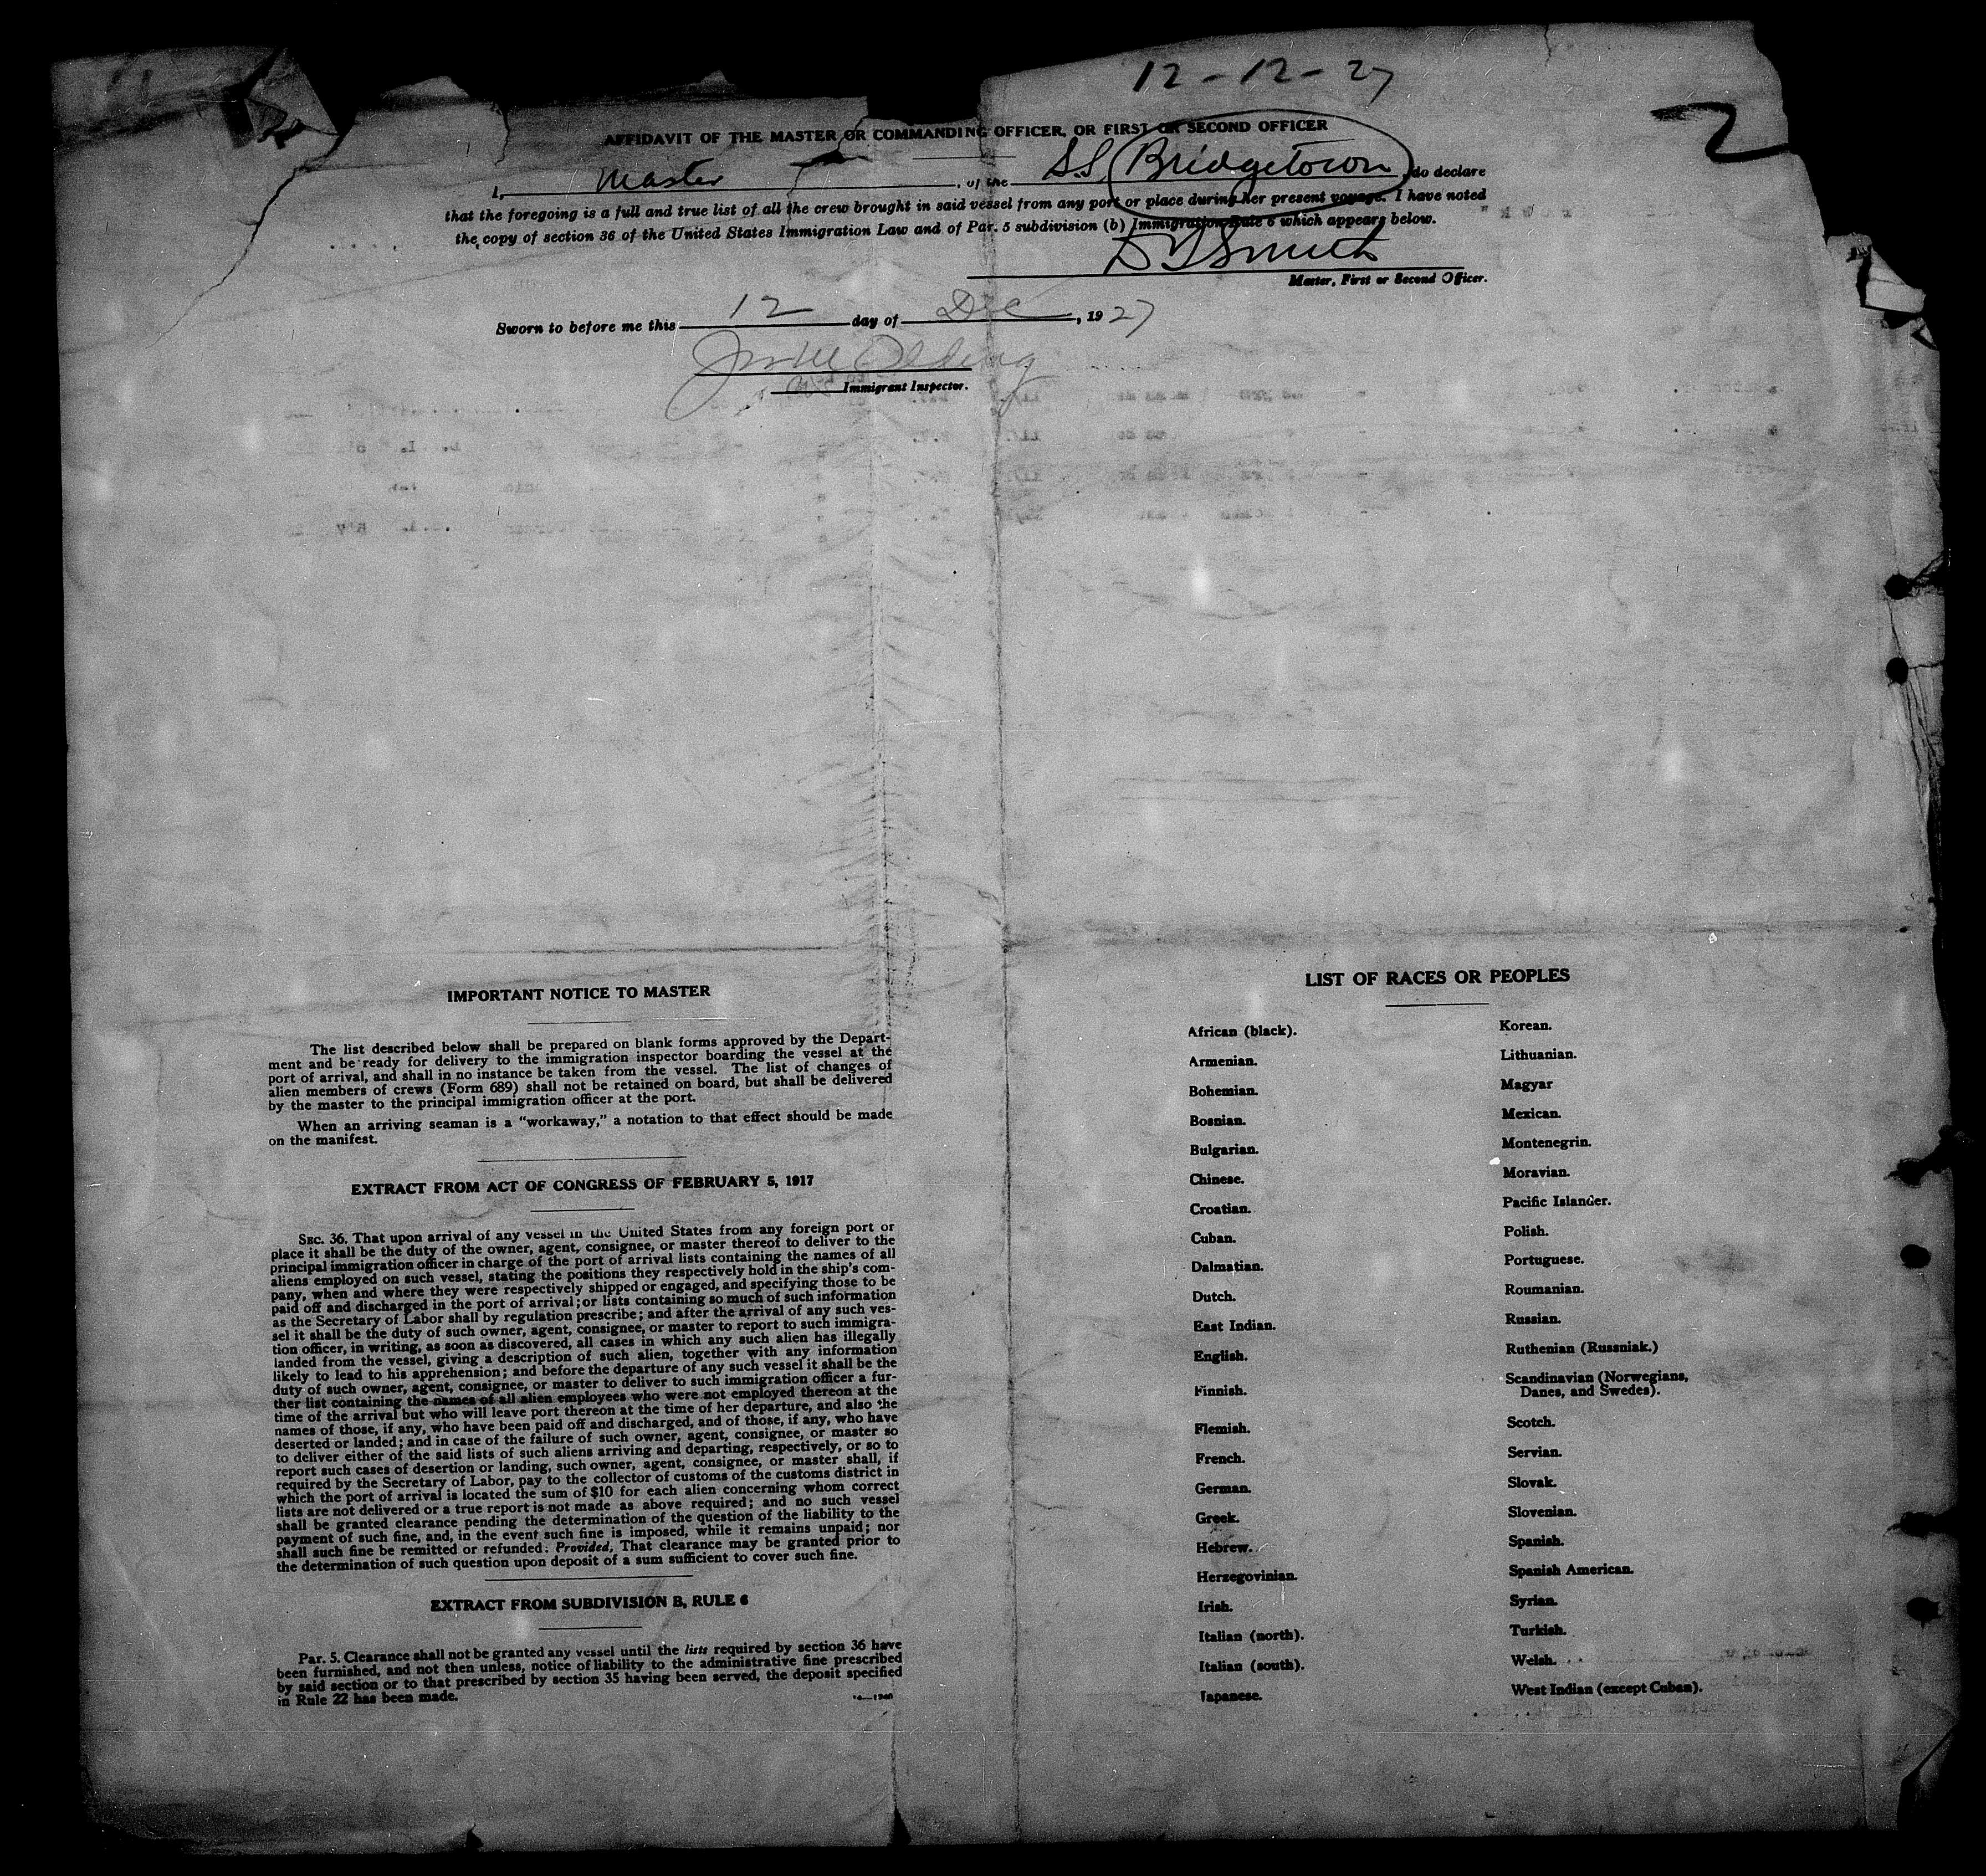 12-12-27
2
AFFIDAVIT OF THE MASTER OR COMMANDING OFFICER, OR FIRST OR SECOND OFFICER
I, Master, of the S.S. Bridgetown, do declare
that the foregoing is a full and true list of all the crew brought in said vessel from any port or place during her present voyage. I have noted
the copy of section 36 of the United States Immigration Law and of Par. 5 subdivision (b) Immigration Rule 6 which appears below.
Smith
Master, First or Second Officer.
Sworn to before me this 12 day of Dec, 1927
Immigrant Inspector.
IMPORTANT NOTICE TO MASTER
The list described below shall be prepared on blank forms approved by the Depart-
ment and be ready for delivery to the immigration inspector boarding the vessel at the
port of arrival, and shall in no instance be taken from the vessel. The list of changes of
alien members of crews (Form 689) shall not be retained on board, but shall be delivered
by the master to the principal immigration officer at the port.
When an arriving seaman is a "workaway," a notation to that effect should be made
on the manifest.
EXTRACT FROM ACT OF CONGRESS OF FEBRUARY 5, 1917
SEC. 36. That upon arrival of any vessel in the United States from any foreign port or
place it shall be the duty of the owner, agent, consignee, or master thereof to deliver to the
principal immigration officer in charge of the port of arrival lists containing the names of all
aliens employed on such vessel, stating the positions they respectively hold in the ship's com-
pany, when and where they were respectively shipped or engaged, and specifying those to be
paid off and discharged in the port of arrival; or lists containing so much of such information
as the Secretary of Labor shall by regulation prescribe; and after the arrival of any such ves-
sel it shall be the duty of such owner, agent, consignee, or master to report to such immigra-
tion officer, in writing, as soon as discovered, all cases in which any such alien has illegally
landed from the vessel, giving a description of such alien, together with any information
likely to lead to his apprehension; and before the departure of any such vessel it shall be the
duty of such owner, agent, consignee, or master to deliver to such immigration officer a fur-
ther list containing the names of all alien employees who were not employed thereon at the
time of the arrival but who will leave port thereon at the time of her departure, and also the
names of those, if any, who have been paid off and discharged, and of those, if any, who have
deserted or landed; and in case of the failure of such owner, agent, consignee, or master so
to deliver either of the said lists of such aliens arriving and departing, respectively, or so to
report such cases of desertion or landing, such owner, agent, consignee, or master shall, if
required by the Secretary of Labor, pay to the collector of customs of the customs district in
which the port of arrival is located the sum of $10 for each alien concerning whom correct
lists are not delivered or a true report is not made as above required; and no such vessel
shall be granted clearance pending the determination of the question of the liability to the
payment of such fine, and, in the event such fine is imposed, while it remains unpaid; nor
shall such fine be remitted or refunded: Provided, That clearance may be granted prior to
the determination of such question upon deposit of a sum sufficient to cover such fine.
EXTRACT FROM SUBDIVISION B, RULE 6
Par. 5. Clearance shall not be granted any vessel until the lists required by section 36 have
been furnished, and not then unless, notice of liability to the administrative fine prescribed
by said section or to that prescribed by section 35 having been served, the deposit specified
in Rule 22 has been made.
LIST OF RACES OR PEOPLES
African (black).
Armenian.
Bohemian.
Bosnian.
Bulgarian.
Chinese.
Croatian.
Cuban.
Dalmatian.
Dutch.
East Indian.
English.
Finnish.
Flemish.
French.
German.
Greek.
Hebrew.
Herzegovinian.
Irish.
Italian (north).
Italian (south).
Japanese.
Korean.
Lithuanian.
Magyar
Mexican.
Montenegrin.
Moravian.
Pacific Islander.
Polish.
Portuguese.
Roumanian.
Russian.
Ruthenian (Russniak.)
Scandinavian (Norwegians,
Danes, and Swedes).
Scotch.
Servian.
Slovak.
Slovenian.
Spanish.
Spanish American.
Syrian.
Turkish.
Welsh.
West Indian (except Cuban).